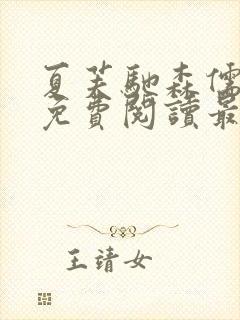 夏芙馳森儒
免費閱讀最
王靖女